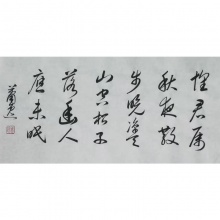 懷君属
秋夜散
步咏涼天
山空松子
落幽人
應未眠